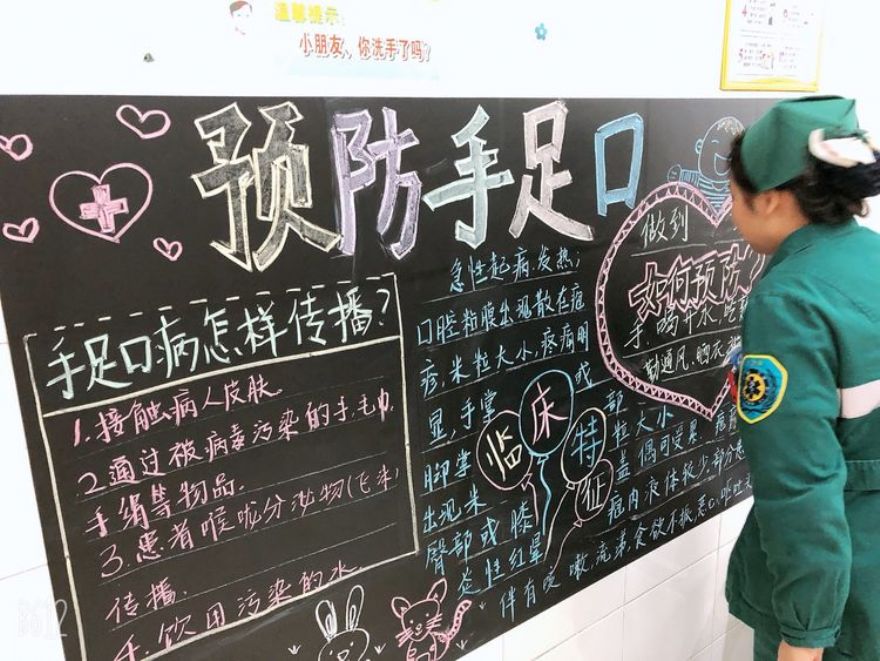 温馨提示:
小朋友、你洗手了吗?
预防手足口
手足口病怎样传播?
1.接触病人皮肤。
2.通过被病毒污染的手、毛巾、
手绢等物品。
3.患者喉咙分泌物(飞沫)
传播.
4.饮用污染的水
急性起病.发热;
口腔粘膜出现散在疱
疹,米粒大小,疼痛明
显,手掌 或
脚掌 部
出现米 粒大小
臀部或膝 盖 偶可受累.
炎性红晕 疱内液体较少.部分患
伴有咳嗽,流涕,食欲不振,恶心,呕吐
临床特征
做到
如何预防?
手、喝开水、吃
勤通风、晒衣
B612